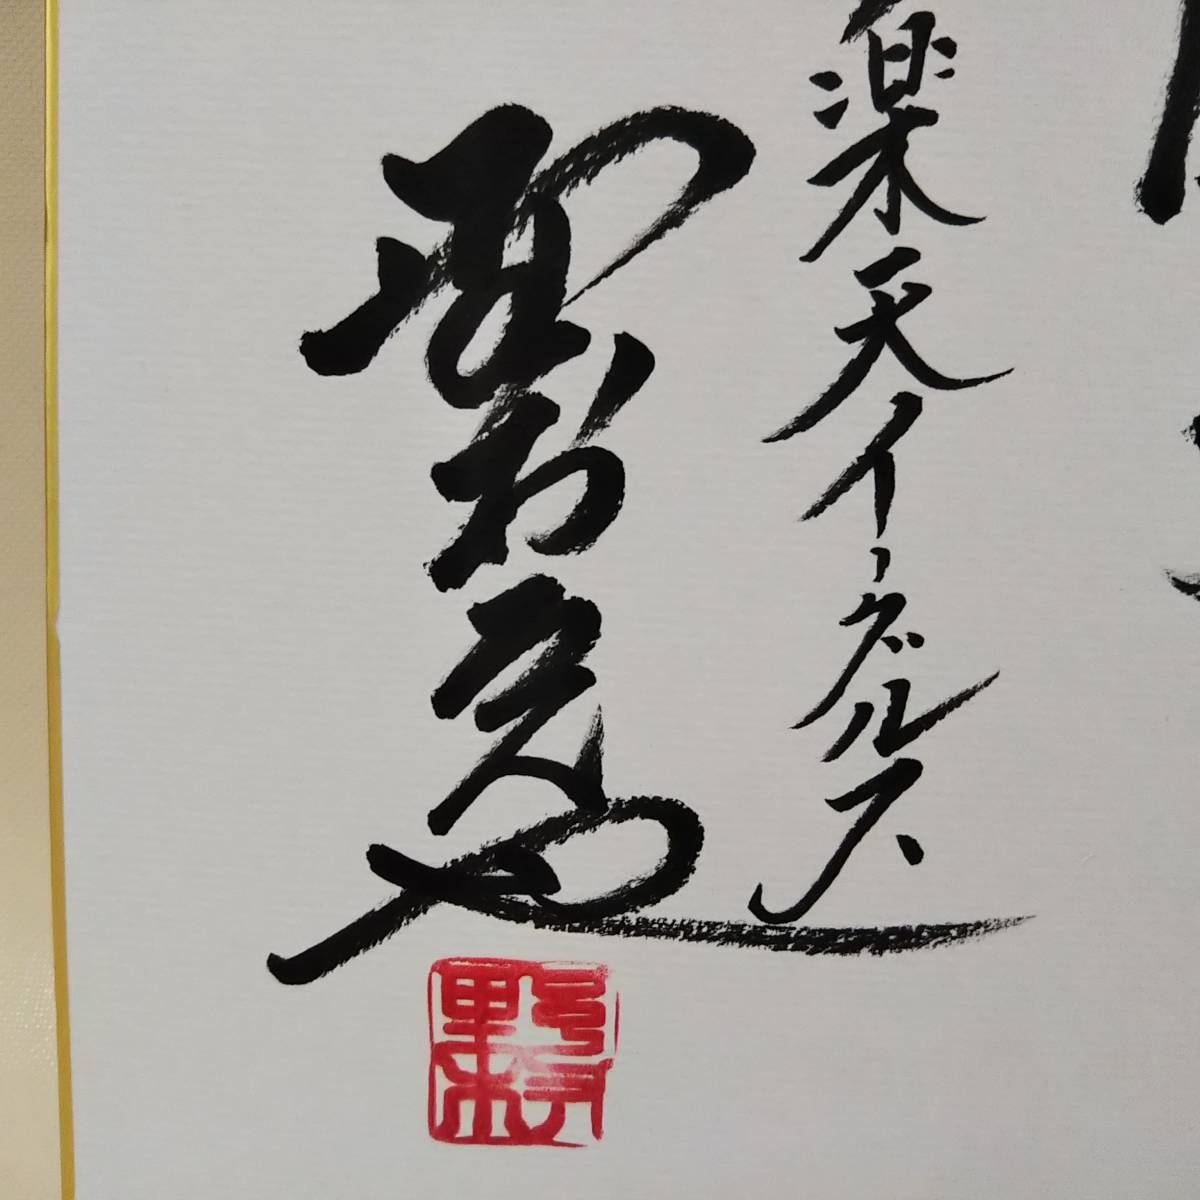 楽天イーグルス
野村克也
野村